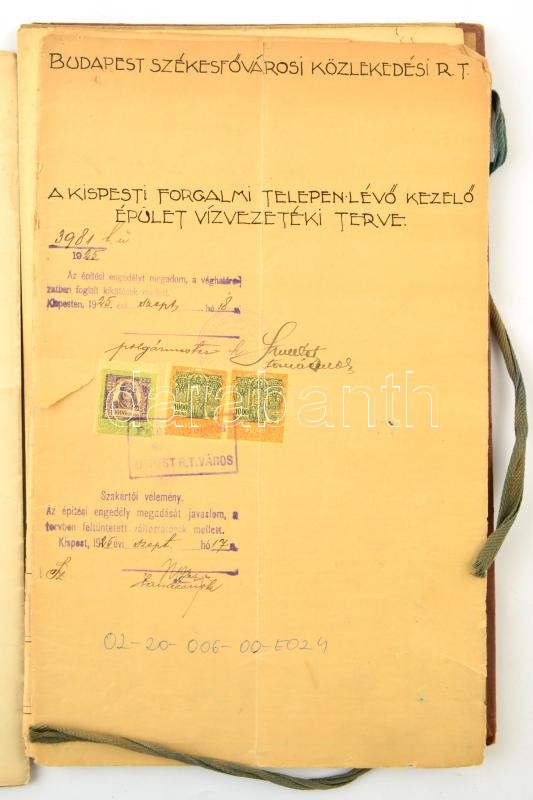 BUDAPEST SZÉKESFŐVÁROSI KÖZLEKEDÉSI R.T.
A KISPESTI FORGALMI TELEPEN·LÉVŐ KEZELŐ
ÉPÜLET VÍZVEZETÉKI TERVE·
3981 k.ü
1925
Az építési engedélyt megadom, a véghatáro-
zatban foglalt kikötések mellett.
Kispesten, 1925. évi szept. hó 18 n.
polgármester h.
tanácsnok
1000
1000
1000
darabanth
KISPEST R.T. VÁROS
Szakértői vélemény.
Az építési engedély megadását javaslom, a
tervben feltüntetett változtatások mellett.
Kispest, 1925 évi szept. hó 17 n.
Sz
tanácsnok
02-20-006-00-E024